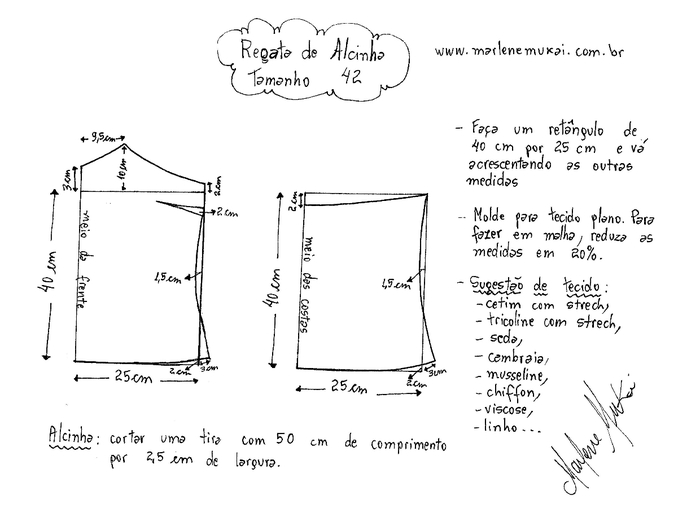 Regata de Alcinha
Tamanho 42
www.marlenemukai.com.br
9,5cm
3cm
10cm
2cm
2cm
meio da frente
40cm
1,5cm
2cm
3cm
25cm
2cm
meio das costas
40cm
1,5cm
2cm
3cm
25cm
- Faça um retângulo de
40 cm por 25 cm e vá
acrescentando as outras
medidas
- Molde para tecido plano. Para
fazer em malha, reduza as
medidas em 20%.
- Sugestão de tecido:
- cetim com strech,
- tricoline com strech,
- seda,
- cambraia,
- musseline,
- chiffon,
- viscose,
- linho...
Alcinha: cortar uma tira com 50 cm de comprimento
por 2,5 cm de largura.
Marlene Mukai